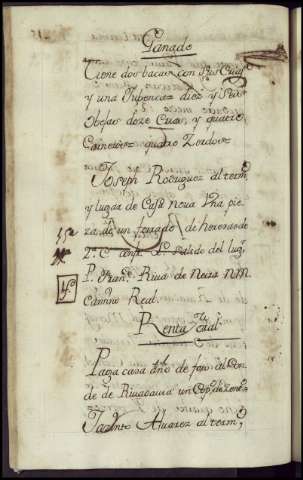 Ganado
Tiene dos bacas con sus Crias
y una Jubenca diez y seis
Obejas doze Crias, y quatro
Carneros quatro Zerdos
Joseph Rodriguez al term,
y lugar de Casa nova Vna pie
za de un ferrado de herens de
2ª C conf. L. Salido del lug.
P. Fran.co Riva de Neira N. M.
Camino Real
Renta
Paga cada año de foro al Con
de de Rivadavia un Cap. de Zent.
Jazinto Alvarez al term,